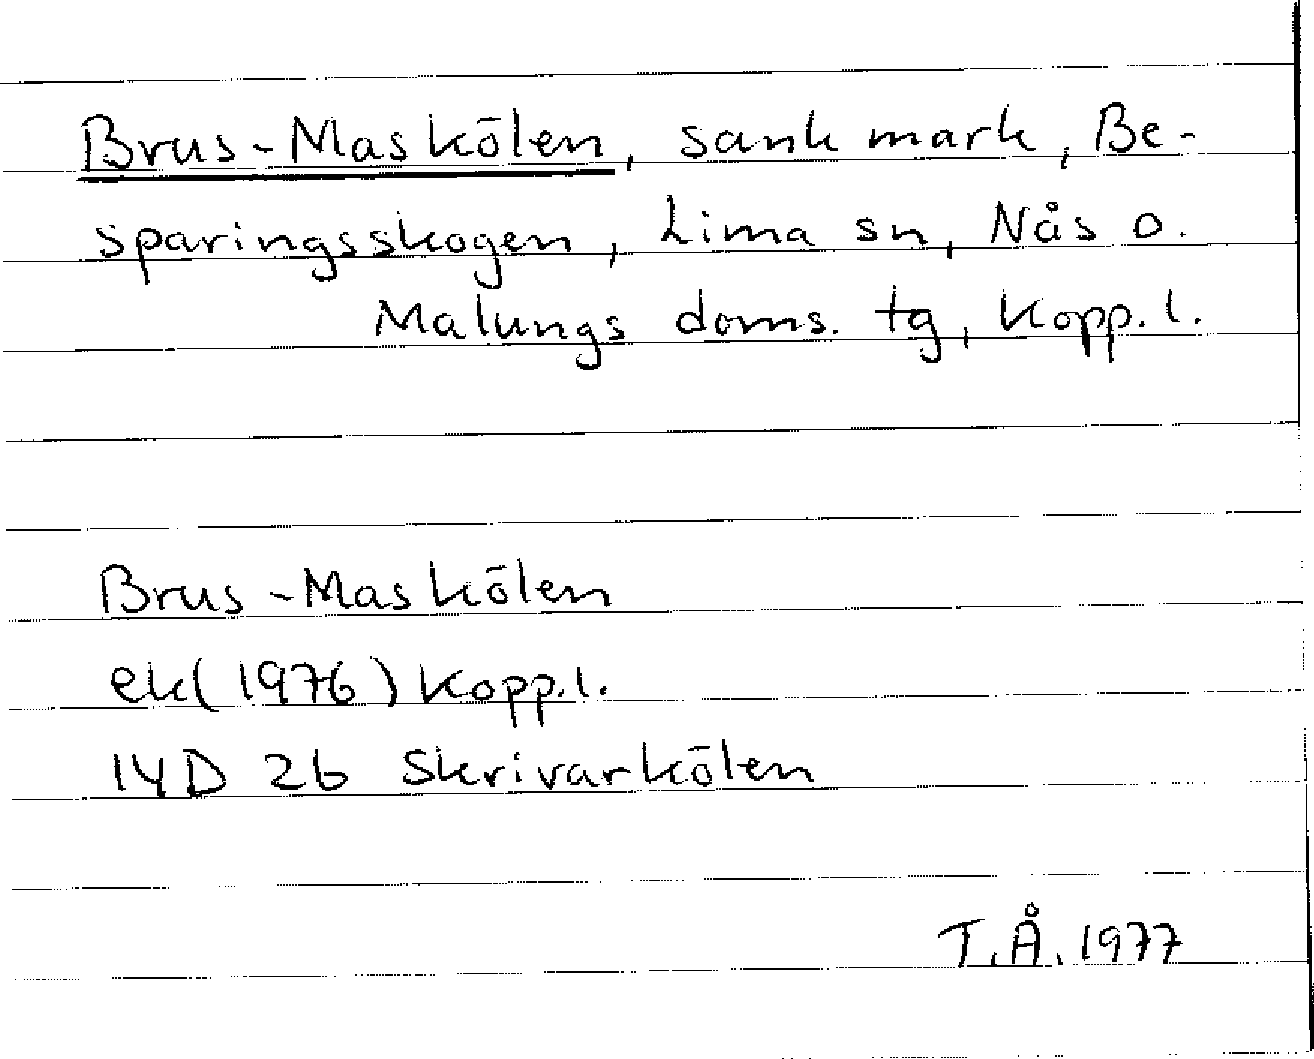 Brus-Maskölen, sank mark, Be-
sparingsskogen, Lima sn, Nås o.
Malungs doms. tg, Kopp. l.
Brus-Maskölen
ek(1976) Kopp.l.
14D 2b Skrivarkölen
T.Å. 1977